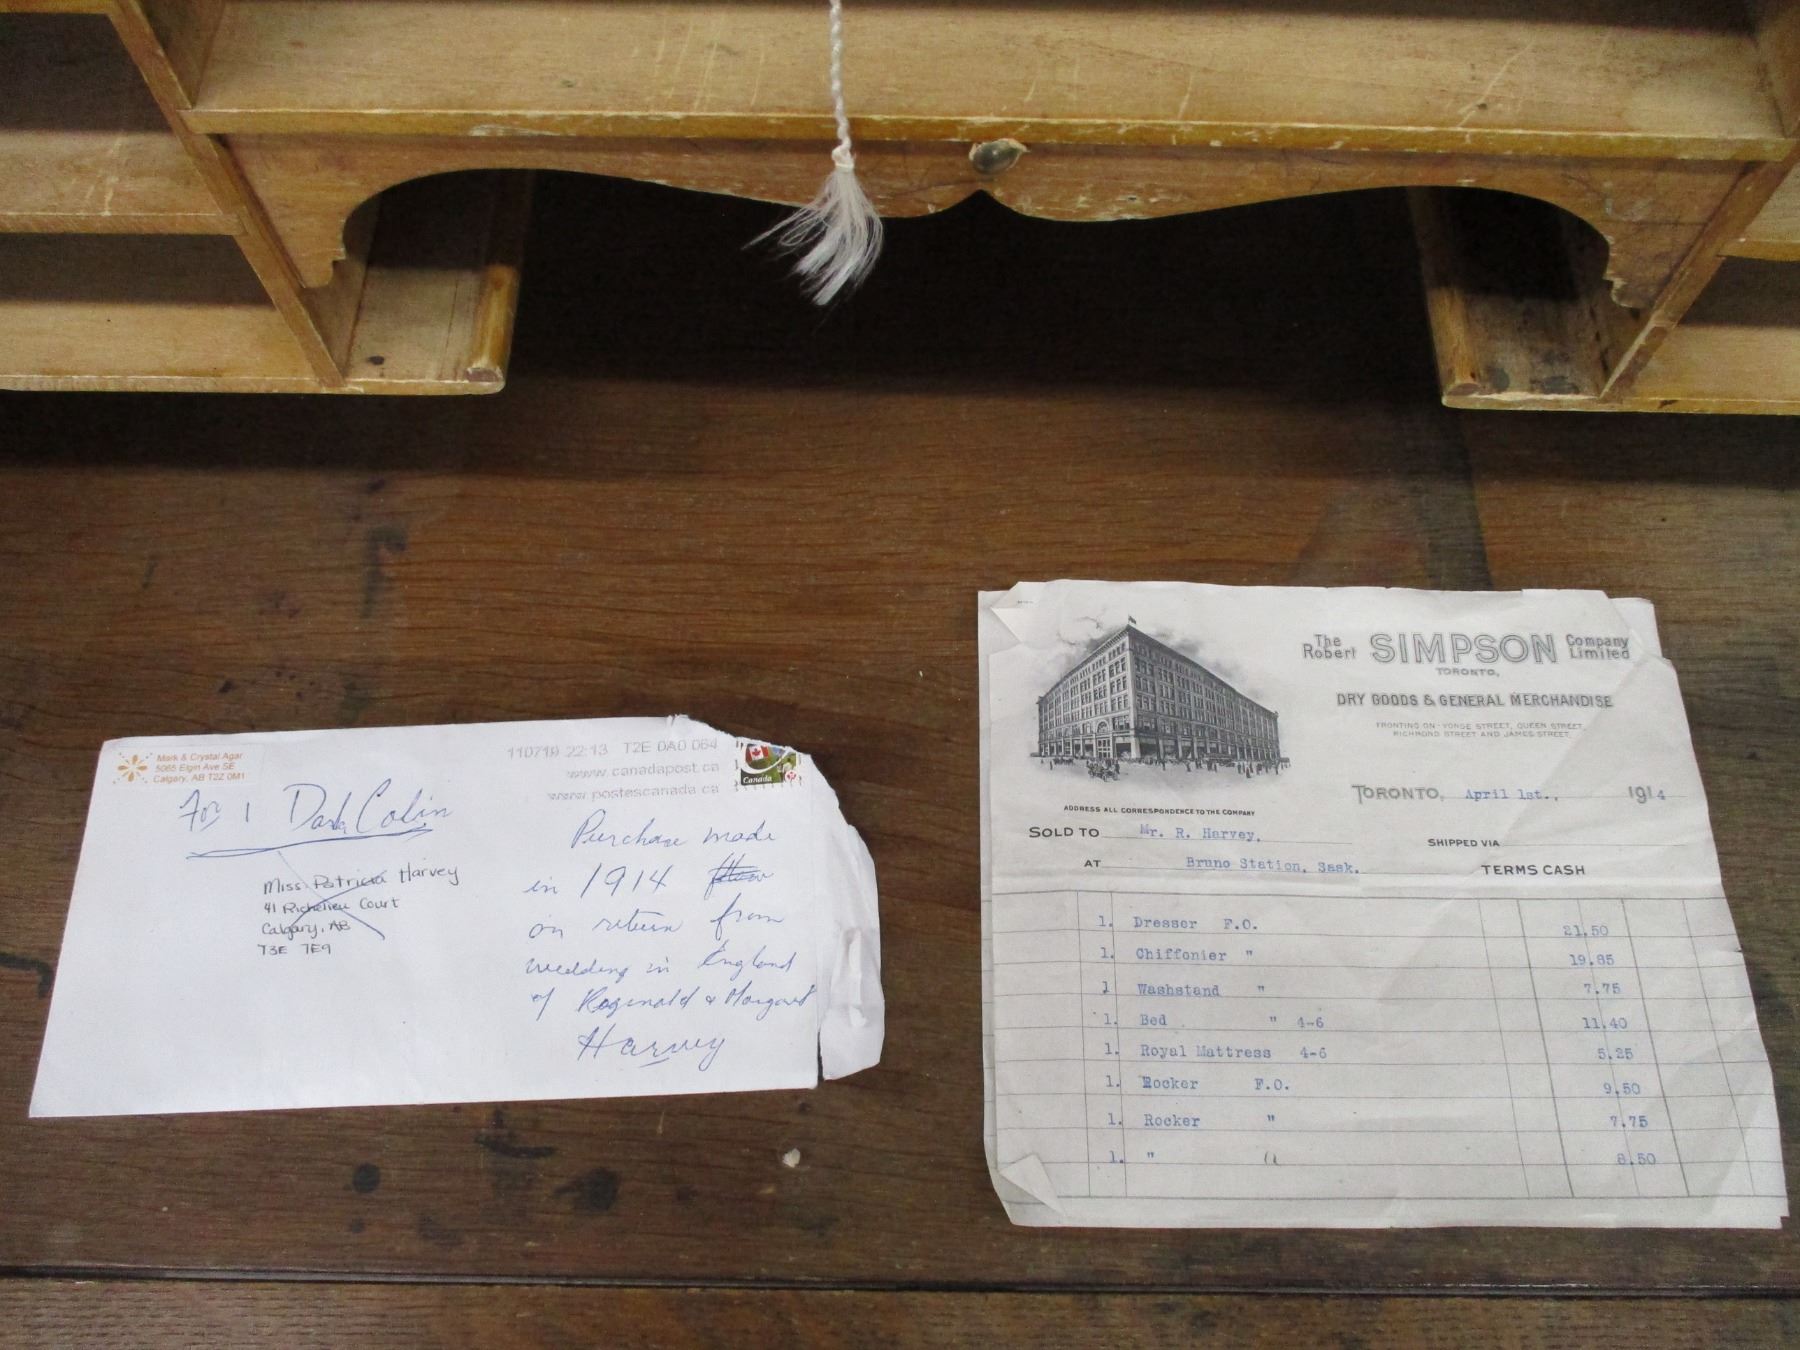 Mark & Crystal Agar
5065 Elgin Ave SE
Calgary, AB T2Z 0M1
110719 22:13 T2E 0A0 064
www.canadapost.ca
www.postescanada.ca
Canada
For Colin
Miss Patricia Harvey
41 Richelieu Court
Calgary, AB
T3E 7E9
Purchase made
in 1914
on return from
wedding in England
of Reginald & Margaret
Harvey
The Robert SIMPSON Company Limited
TORONTO,
DRY GOODS & GENERAL MERCHANDISE
FRONTING ON YONGE STREET, QUEEN STREET,
RICHMOND STREET AND JAMES STREET.
ADDRESS ALL CORRESPONDENCE TO THE COMPANY
TORONTO, April 1st., 1914
SOLD TO Mr. R. Harvey.
SHIPPED VIA
AT Bruno Station, Sask.
TERMS CASH
1. Dresser F.O. 21.50
1. Chiffonier " 19.85
1 Washstand " 7.75
1. Bed " 4-6 11.40
1. Royal Mattress 4-6 5.25
1. Rocker F.O. 9.50
1. Rocker " 7.75
1. " " 8.50